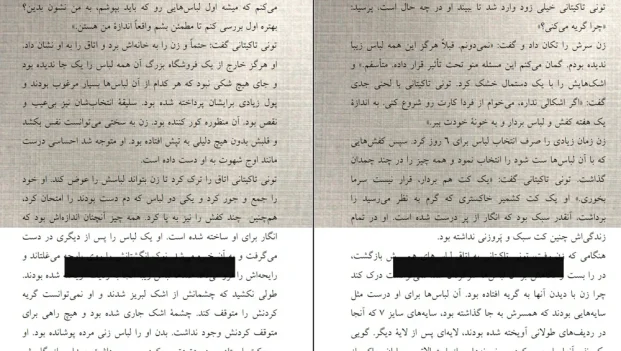 می‌کنم که میشه اول لباس‌هایی رو که باید بپوشم، به من نشون بدین؟
بهتره اول بررسی کنم تا مطمئن بشم واقعاً اندازهٔ من هستن.»
تونی تاکیتانی گفت: حتماً و زن را به خانه‌اش برد و اتاق را به او نشان داد.
او هرگز خارج از یک فروشگاه بزرگ آن همه لباس زا یک جا ندیده بود
و جای هیچ شکی نبود که هر کدام از آن لباس‌ها بسیار مرغوب بودند و
پول زیادی برایشان پرداخته شده بود. سلیقهٔ انتخاب‌شان نیز بی‌عیب و
نقص بود. آن منظوره کور کننده بود. زن به سختی می‌توانست نفس بکشد
و قلبش بدون هیچ دلیلی به تپش افتاده بود. او متوجه شد احساسی درست
مانند اوج شهوت به او دست داده است.
تونی تاکیتانی اتاق را ترک کرد تا زن بتواند لباسش را عوض کند. او خود
را جمع و جور کرد و یکی دو لباس که دم دست بودند را امتحان کرد،
هم‌چنین چند کفش را نیز به پا کرد. همه چیز آنچنان اندازه‌اش بود که
انگار برای او ساخته شده است. او یک لباس را پس از دیگری در دست
می‌گرفت و به آن خیره می‌شد. نوک انگشتانش را روی پارچه می‌غلتاند و
رایحه‌اش را شده بودند.
طولی نکشید که چشمانش از اشک لبریز شدند و او نمی‌توانست گریه
کردنش را متوقف کند. چشمهٔ اشک جاری شده بود و هیچ راهی برای
متوقف کردنش وجود نداشت. بدن او را لباس زنی مرده پوشانده بود. او
تونی تاکیتانی خیلی زود وارد شد تا ببیند او در چه حال است، پرسید:
«چرا گریه می‌کنی؟»
زن سرش را تکان داد و گفت: «نمی‌دونم. قبلاً هرگز این همه لباس زیبا
ندیده بودم. گمان می‌کنم این مسئله منو تحت تأثیر قرار داده. متأسفم.» و
اشک‌هایش را با یک دستمال خشک کرد. تونی تاکیتانی با لحنی جدی
گفت: «اگر اشکالی نداره، می‌خوام از فردا کارت رو شروع کنی. به اندازهٔ
یک هفته کفش و لباس بردار و به خونهٔ خودت ببر.»
زن زمان زیادی را صرف انتخاب لباس برای ۶ روز کرد. سپس کفش‌هایی
که با آن لباس‌ها ست شود را انتخاب نمود و همه چیز را در چند چمدان
گذاشت. تونی تاکیتانی گفت: «یک کت هم بردار، قرار نیست سرما
بخوری.» او یک کت کشمیر خاکستری که گرم به نظر می‌رسید را
برداشت، آنقدر سبک بود که انگار از پر درست شده است. او در تمام
زندگی‌اش چنین کت سبک و پروزنی نداشته بود.
هنگامی که زن رفت، تونی تاکیتانی به اتاق لباس‌های همسرش بازگشت،
در را بست و درک کند
چرا زن با دیدن آنها به گریه افتاده بود. آن لباس‌ها برای او درست مثل
سایه‌هایی بودند که همسرش به جا گذاشته بود، سایه‌های سایز ۷ که آنجا
در ردیف‌های طولانی آویخته شده بودند، لایه‌ای پس از لایهٔ دیگر. گویی